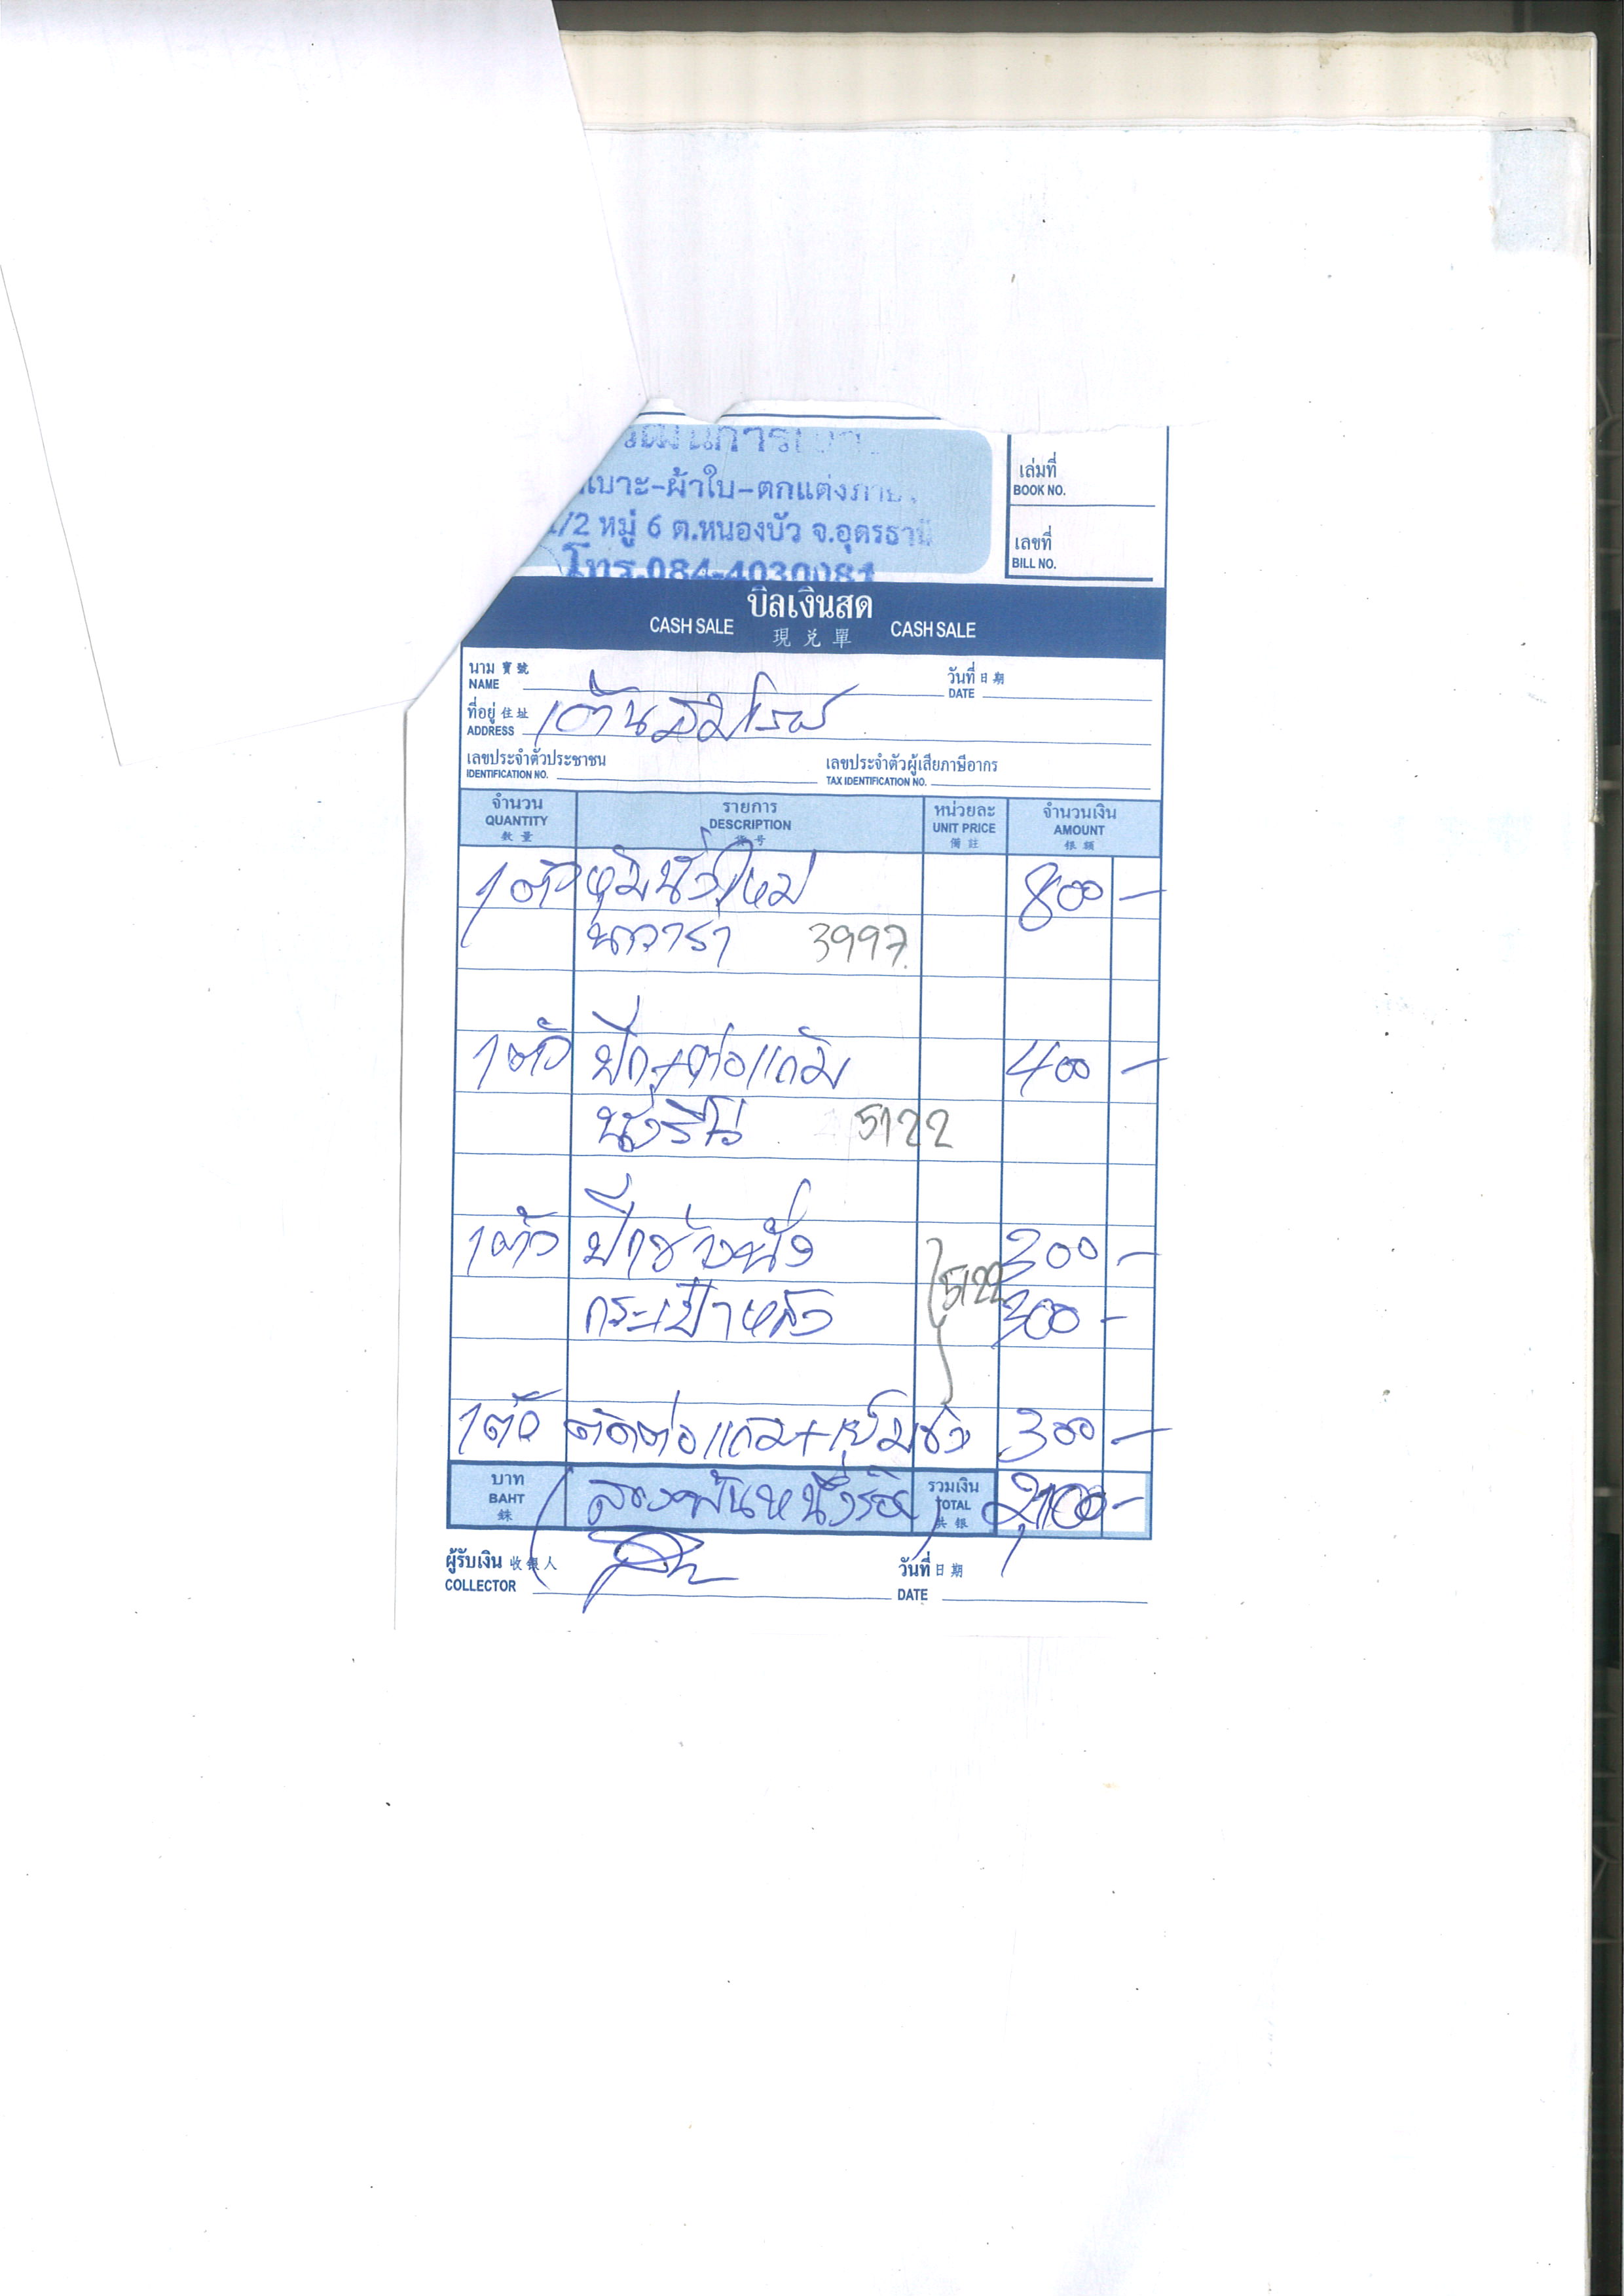 เบาะ-ผ้าใบ-ตกแต่งภาย
/2 หมู่ 6 ต.หนองบัว จ.อุดรธานี
โทร.084-4030081
เล่มที่
BOOK NO.
เลขที่
BILL NO.
บิลเงินสด
CASH SALE 現兌單 CASH SALE
นาม 寶號
NAME
วันที่ 日期
DATE
ที่อยู่ 住址
ADDRESS
เลขประจำตัวประชาชน
IDENTIFICATION NO.
เลขประจำตัวผู้เสียภาษีอากร
TAX IDENTIFICATION NO.
จำนวน รายการ หน่วยละ จำนวนเงิน
QUANTITY DESCRIPTION UNIT PRICE AMOUNT
數量 貨号 備註 銀額
1 ตัว หุ้มนั่งใหม่ 800 -
นาวารา 3997
1 ตัว ปีก+ต่อแถม 400 -
นั่งรีโว่ 5122
1 ตัว ปีกข้างนั่ง 300 -
5122
กระเป๋าหลัง 300 -
1 ตัว ตัดต่อแถม+เย็บ 300 -
บาท (สองพันหนึ่งร้อย) รวมเงิน 2,100 -
BAHT TOTAL
銖 共銀
ผู้รับเงิน 收銀人
COLLECTOR
วันที่ 日期
DATE